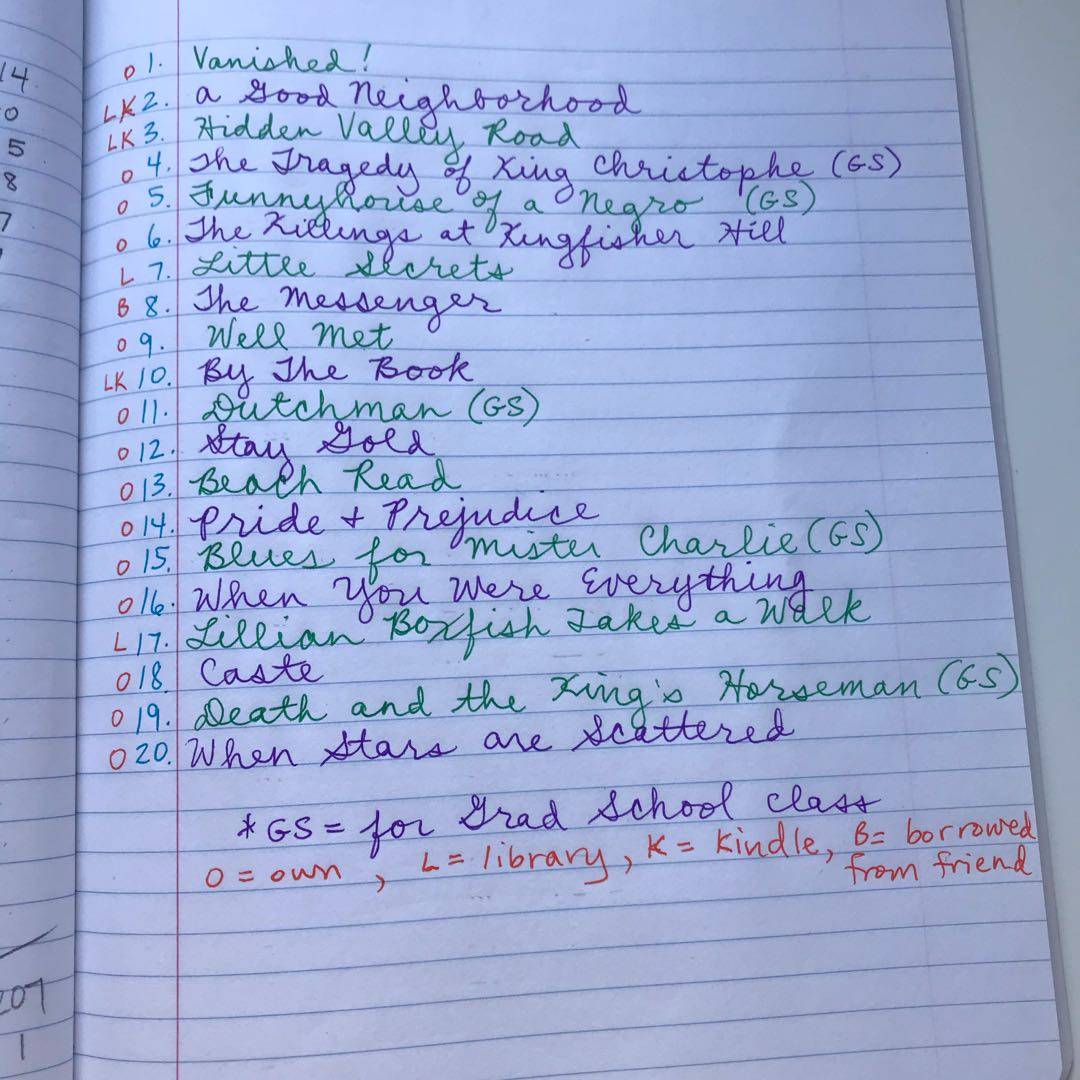 O 1. Vanished!
LK 2. A Good Neighborhood
LK 3. Hidden Valley Road
O 4. The Tragedy of King Christophe (GS)
O 5. Funnyhouse of a Negro (GS)
O 6. The Killings at Kingfisher Hill
L 7. Little Secrets
B 8. The Messenger
O 9. Well Met
LK 10. By The Book
O 11. Dutchman (GS)
O 12. Stay Gold
O 13. Beach Read
O 14. Pride + Prejudice
O 15. Blues for Mister Charlie (GS)
O 16. When You Were Everything
L 17. Lillian Boxfish Takes a Walk
O 18. Caste
O 19. Death and the King's Horseman (GS)
O 20. When Stars are Scattered
*GS = for Grad School class
O = own, L = library, K = Kindle, B = borrowed
from friend
14
0
5
8
7
207
1